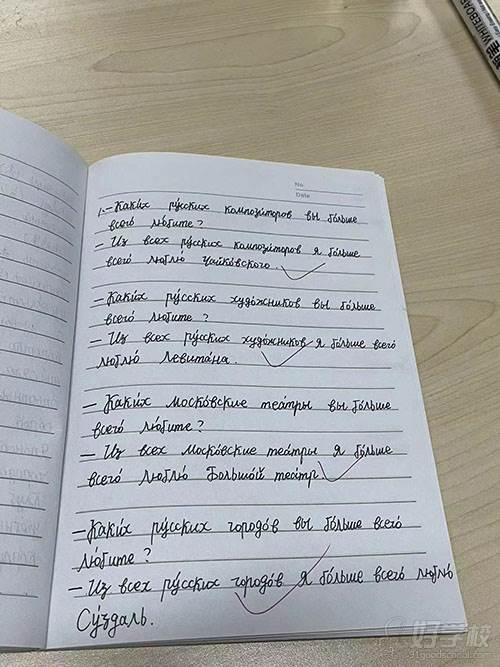 WHITEBOA
No.
Date
1.– Каки́х ру́сских компози́торов вы бо́льше
всего́ лю́бите?
– Из всех ру́сских компози́торов я бо́льше
всего́ люблю́ Чайко́вского.
– Каки́х ру́сских худо́жников вы бо́льше
всего́ лю́бите?
– Из всех ру́сских худо́жников я бо́льше всего́
люблю́ Левита́на.
– Каки́х моско́вские теа́тры вы бо́льше
всего́ лю́бите?
– Из всех моско́вские теа́тры я бо́льше
всего́ люблю́ Большо́й теа́тр.
– Каки́х ру́сских городо́в вы бо́льше всего́
лю́бите?
– Из всех ру́сских городо́в я бо́льше всего́ люблю́
Су́здаль.
好学校